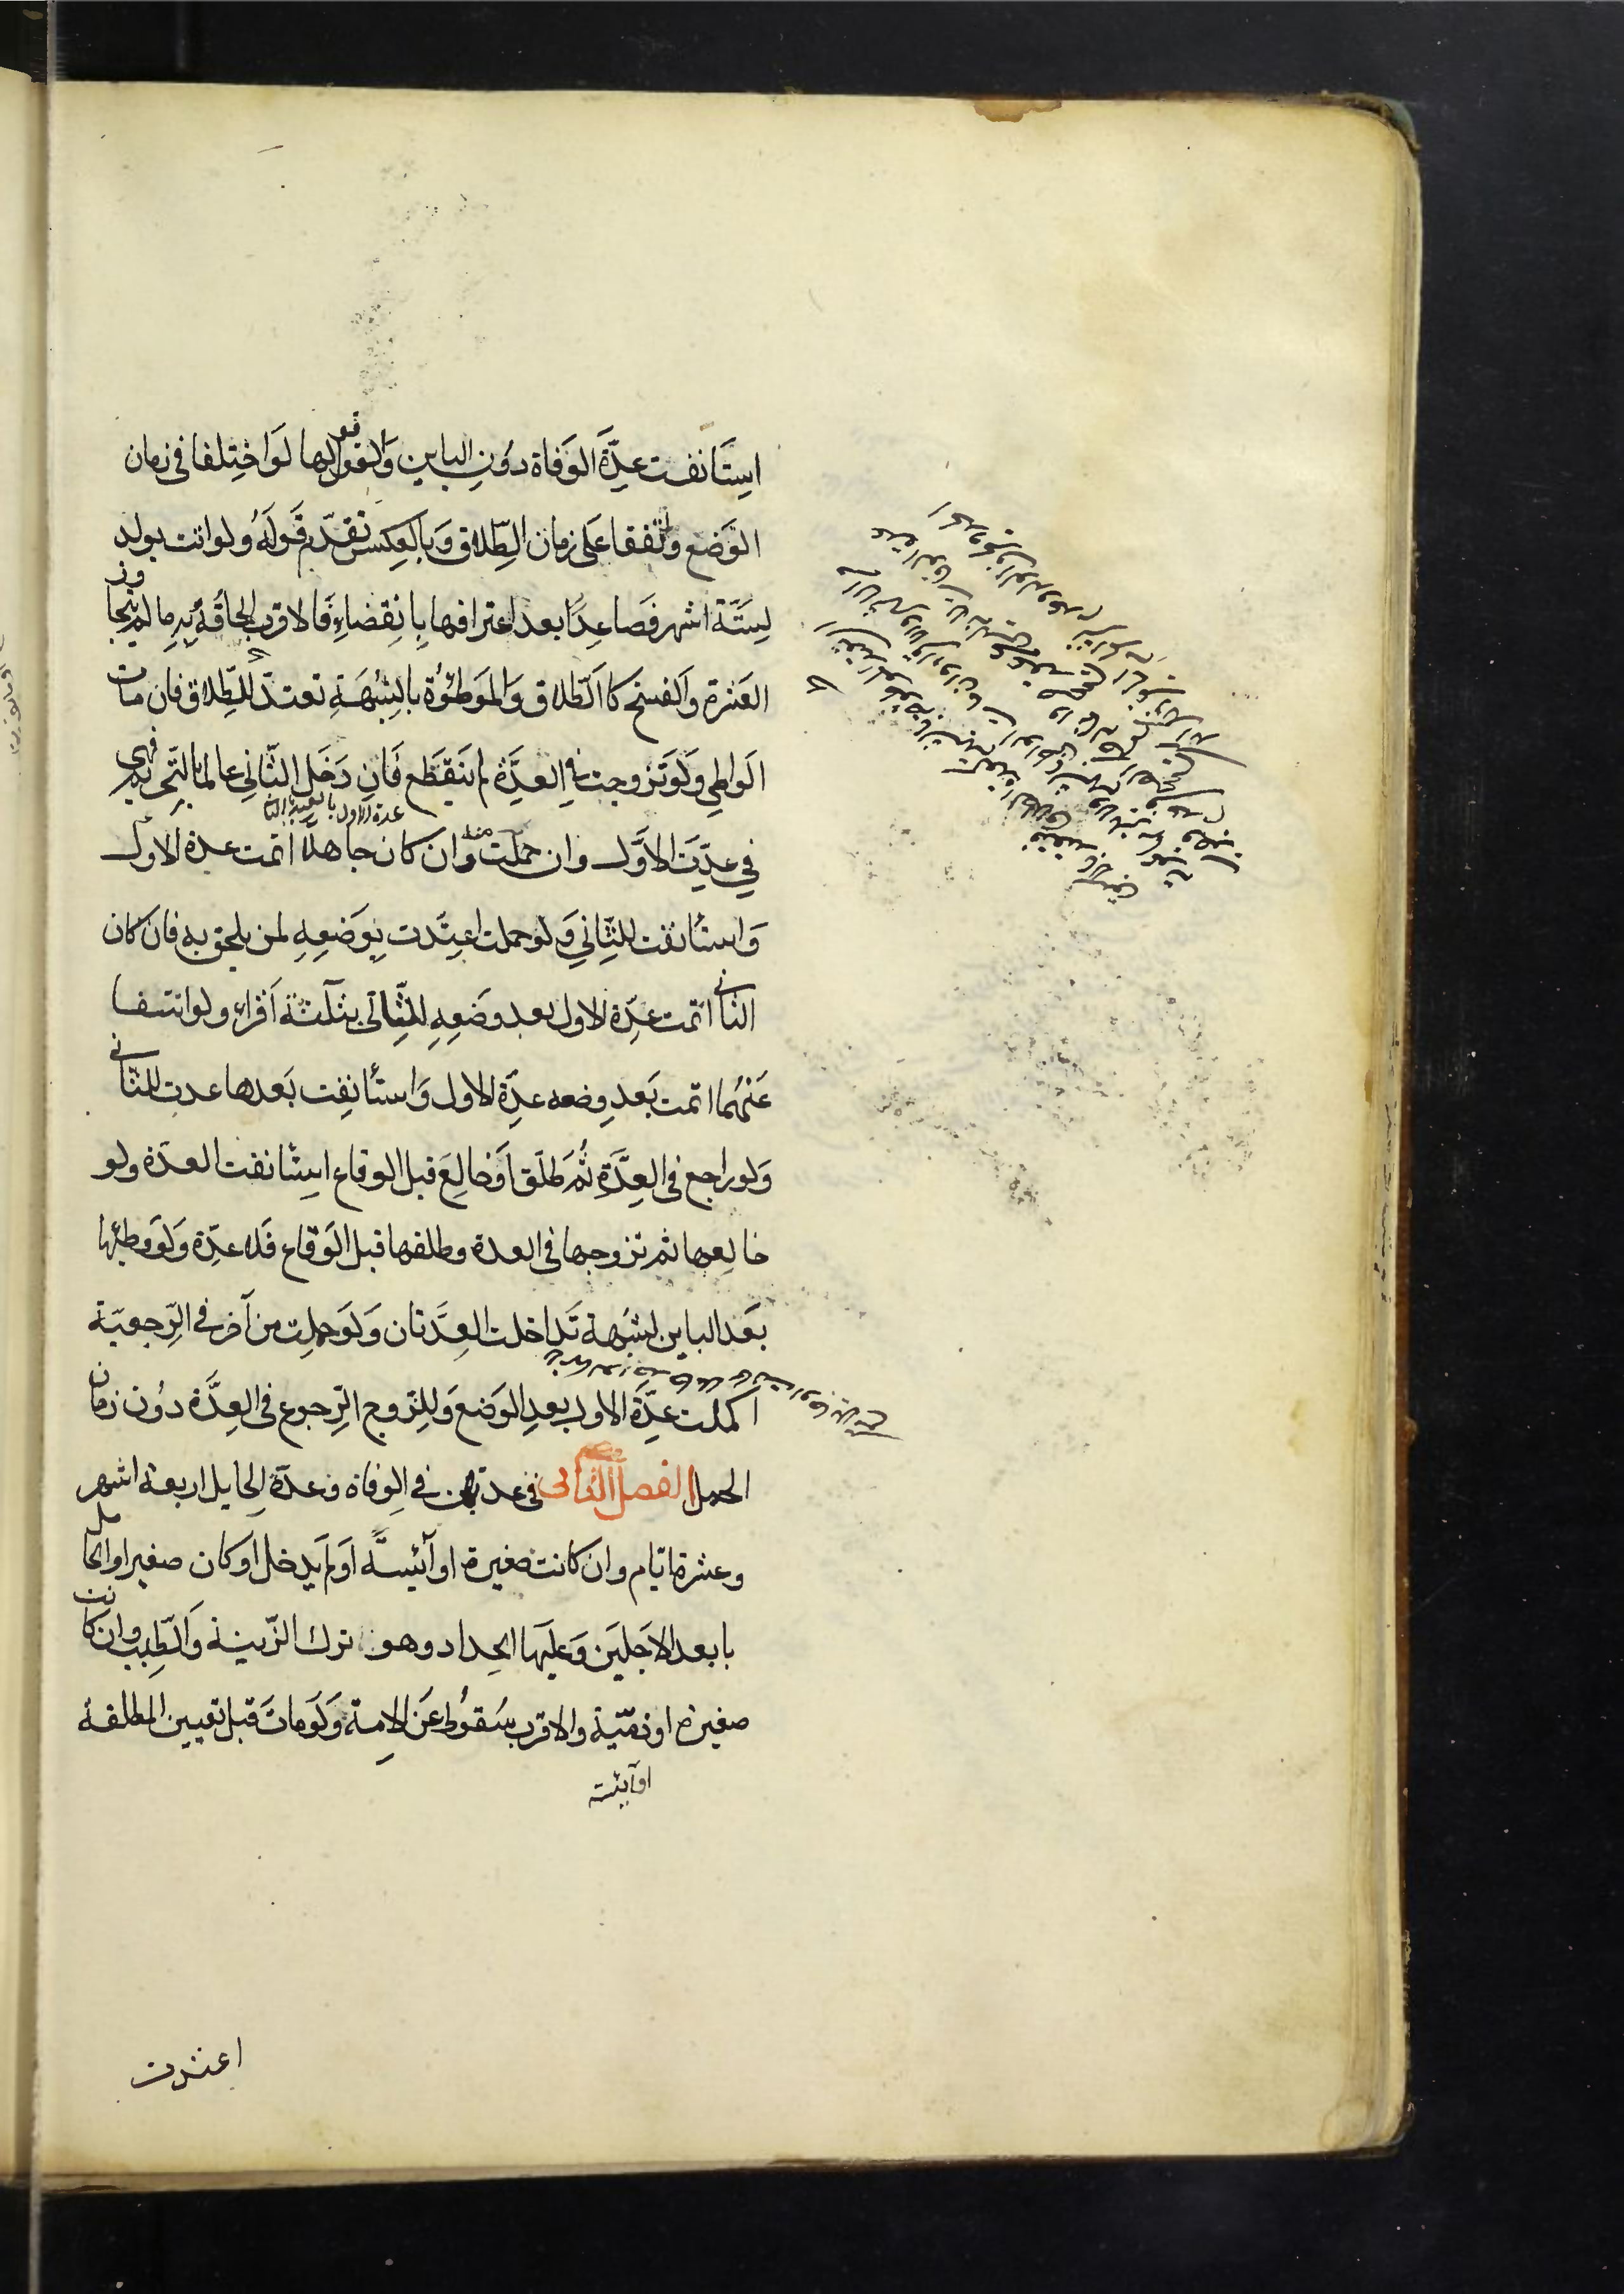 استَانفت عدّة الوَفاة دوُن الباين وَالقول قولها لوَاختلفا فى زمان
الوَضع واتفقا عَلى زمان الطّلاق وَبالعكس تقدّم قَولهُ ولو اتت بولد
لستّة اشهر فصَاعدًا بعد اعترافها بانقضاء فالاقرب الحاقهُ به ما لم يتجاوز
العَشرة وَالفسخ كالطّلاق وَالموَطوُة بالشبُهَة تعتدّ للطّلاق فان مات
الوَاطى ولوَ تزوجت فى العدَّة لم تنقطع فان دَخل الثّانى عالما بالتّحريم فهى
عدة الاول
فى عدّة الاوَّل وان حملت منه وان كان جاهلًا اتمت عدة الاول
وَاستأنفت للثّانى وَلو حملت اعتدّت بوَضعه لمن يلحق به فان كان
الثانى اتمت عدّة الاول بعد وضعه للثّانى بثلثة اَقراء ولو انتفا
عَنهُما اتمت بَعد وضعه عدّة الاول وَاستأنفت بَعدها عدت للثانى
وَلو راجع فى العدَّة ثمَّ طلّق اوَ خالعَ قبل الوقاع استأنفت العدّة ولو
خالعها ثم تزوجها فى العدة وطلقها قبل الوَقاع فلا عدّة وَلوَ وطئها
بَعد الباين لشبُهة تَداخلت العدَّتان وَلوَ حملت من آخر فى الرّجعيّة
اكملت عدّة الاول بعد الوَضع وَللزّوج الرّجوع فى العدَّة دوُن زمان
الحمل الفصل الثّانى فى عدتهن فى الوفاة وعدّة الحايل اربعة اشهر
وعشرة ايّام وان كانت صغيرة او آئيسَّة اوَ لم يدخل او كان صغيرا والحامل
بابعد الاجَلين وَعليَها الحداد وهو ترك الزّينة وَالطّيب وان كانت
صغيرة او ذمّية والاقرب سُقوُط عَن الامة وَلوَ ماتَ قبل تعيين المطلقة
او آيئسة
اعتدت